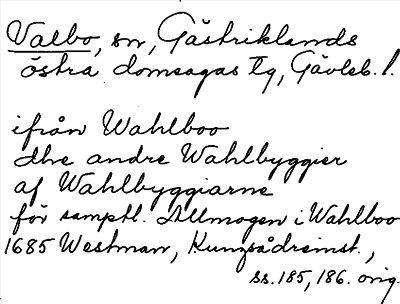 Valbo, sn, Gästriklands
östra domsagas tg, Gävleb. l.
ifrån Wahlboo
dhe andre Wahlbyggier
af Wahlbyggiarne
för samptl. Allmogen i Wahlboo
1685 Westman, Kungsådreinst.,
ss. 185, 186. orig.